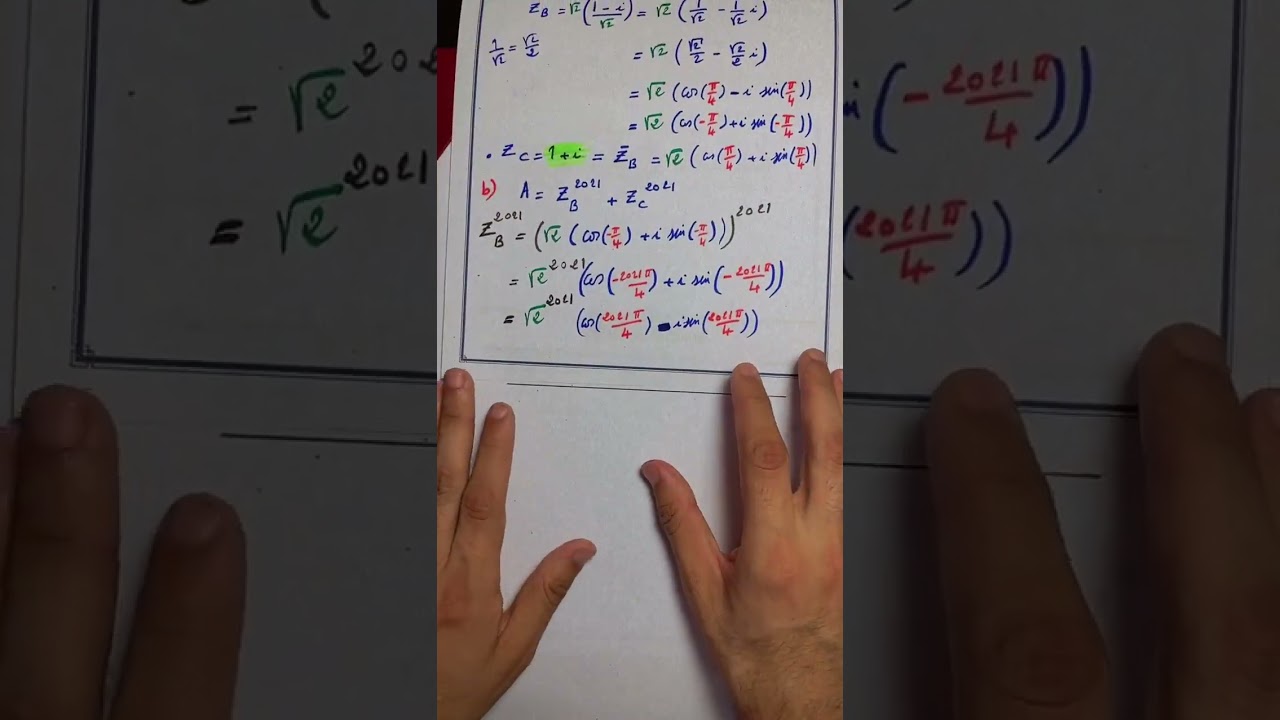 Z_B = √2 ( (1 - i)/√2 ) = √2 ( 1/√2 - 1/√2 i )
1/√2 = √2/2
= √2 ( √2/2 - √2/2 i )
= √2 ( cos(π/4) - i sin(π/4) )
= √2 ( cos(-π/4) + i sin(-π/4) )
• Z_C = 1 + i = Z̄_B = √2 ( cos(π/4) + i sin(π/4) )
b) A = Z_B^2021 + Z_C^2021
Z_B^2021 = ( √2 ( cos(-π/4) + i sin(-π/4) ) )^2021
= √2^2021 ( cos(-2021π/4) + i sin(-2021π/4) )
= √2^2021 ( cos(2021π/4) - i sin(2021π/4) )